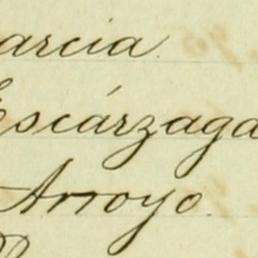 arcia
Escárzaga
Arroyo